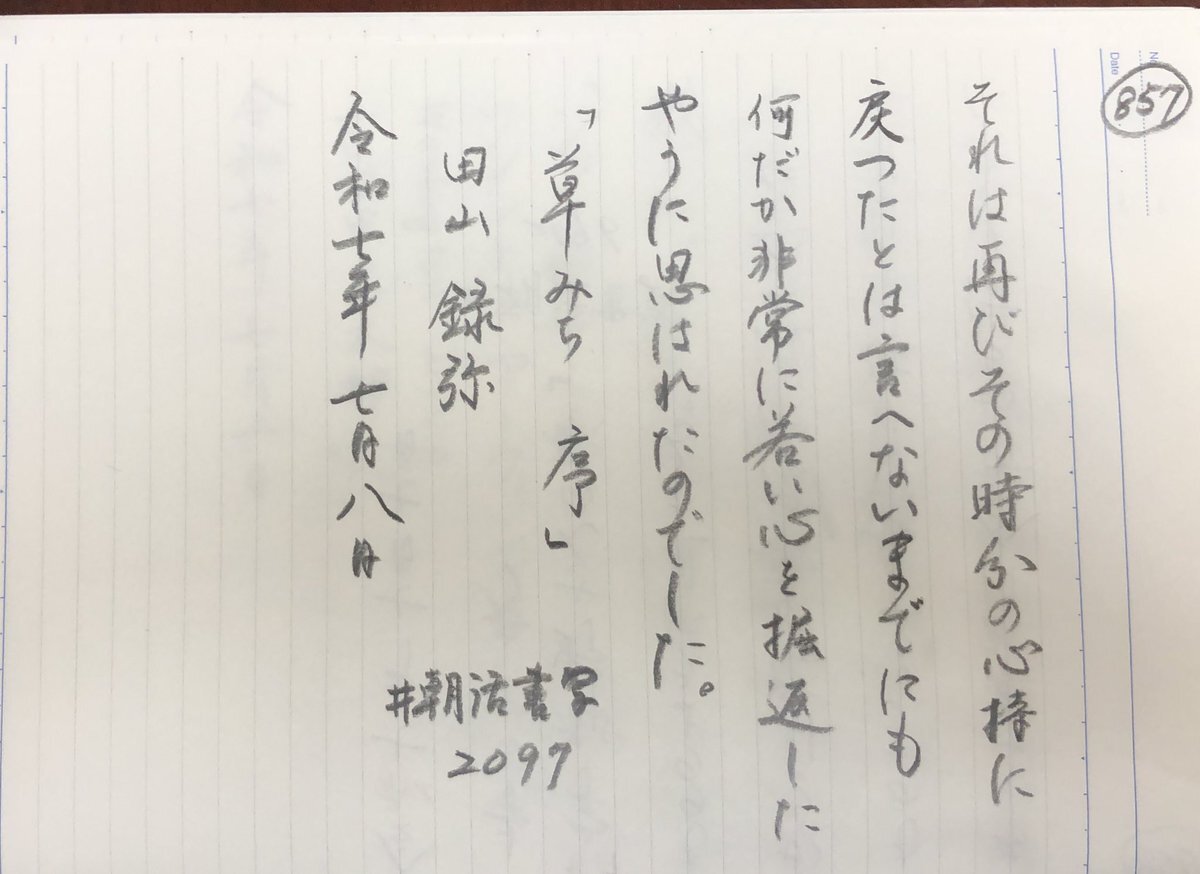 857
No.
Date
それは再びその時分の心持に
戻つたとは言へないまでにも
何だか非常に若い心を掘返した
やうに思はれたのでした。
「草みち 序」
田山 録弥
令和七年 七月八日
#朝活書写
2097